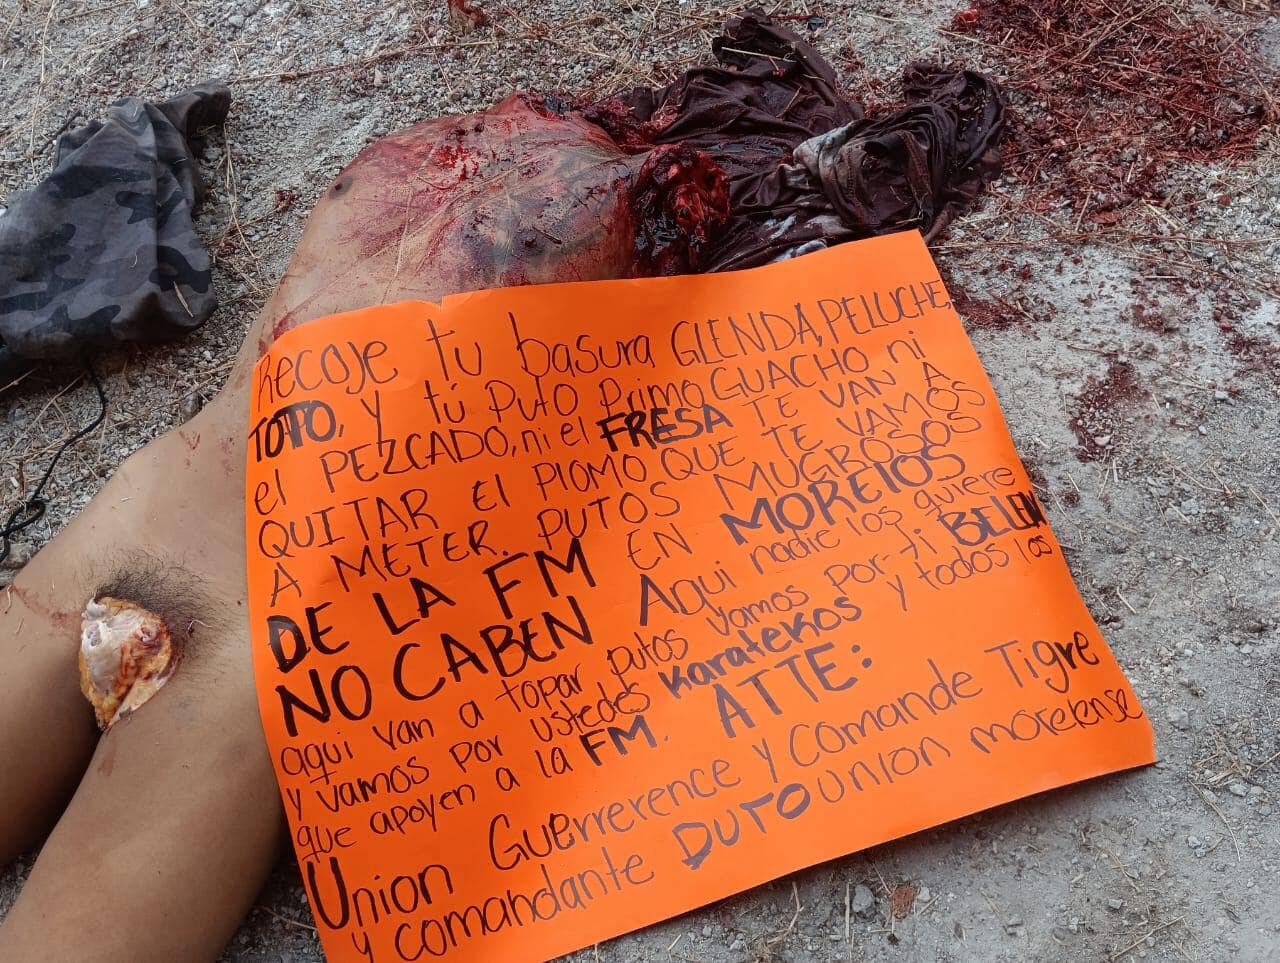 Recoje tu basura GLENDA, PELUCHE,
TOTO, y tú PUTO Primo GUACHO ni
el PEZCADO, ni el FRESA TE VAN A
QUITAR El PlOMO QUE TE VAMOS
A METER. PUTOS MUGROSOS
DE LA FM EN MORElOS
NO CABEN Aqui nadie los quiere
aqui van a topar putos vamos por ti BELEN
y vamos por ustedes Karatekos y todos los
que apoyen a la FM. ATTE:
Union Guerrerence y Comande Tigre
y comandante DUTO union morelense